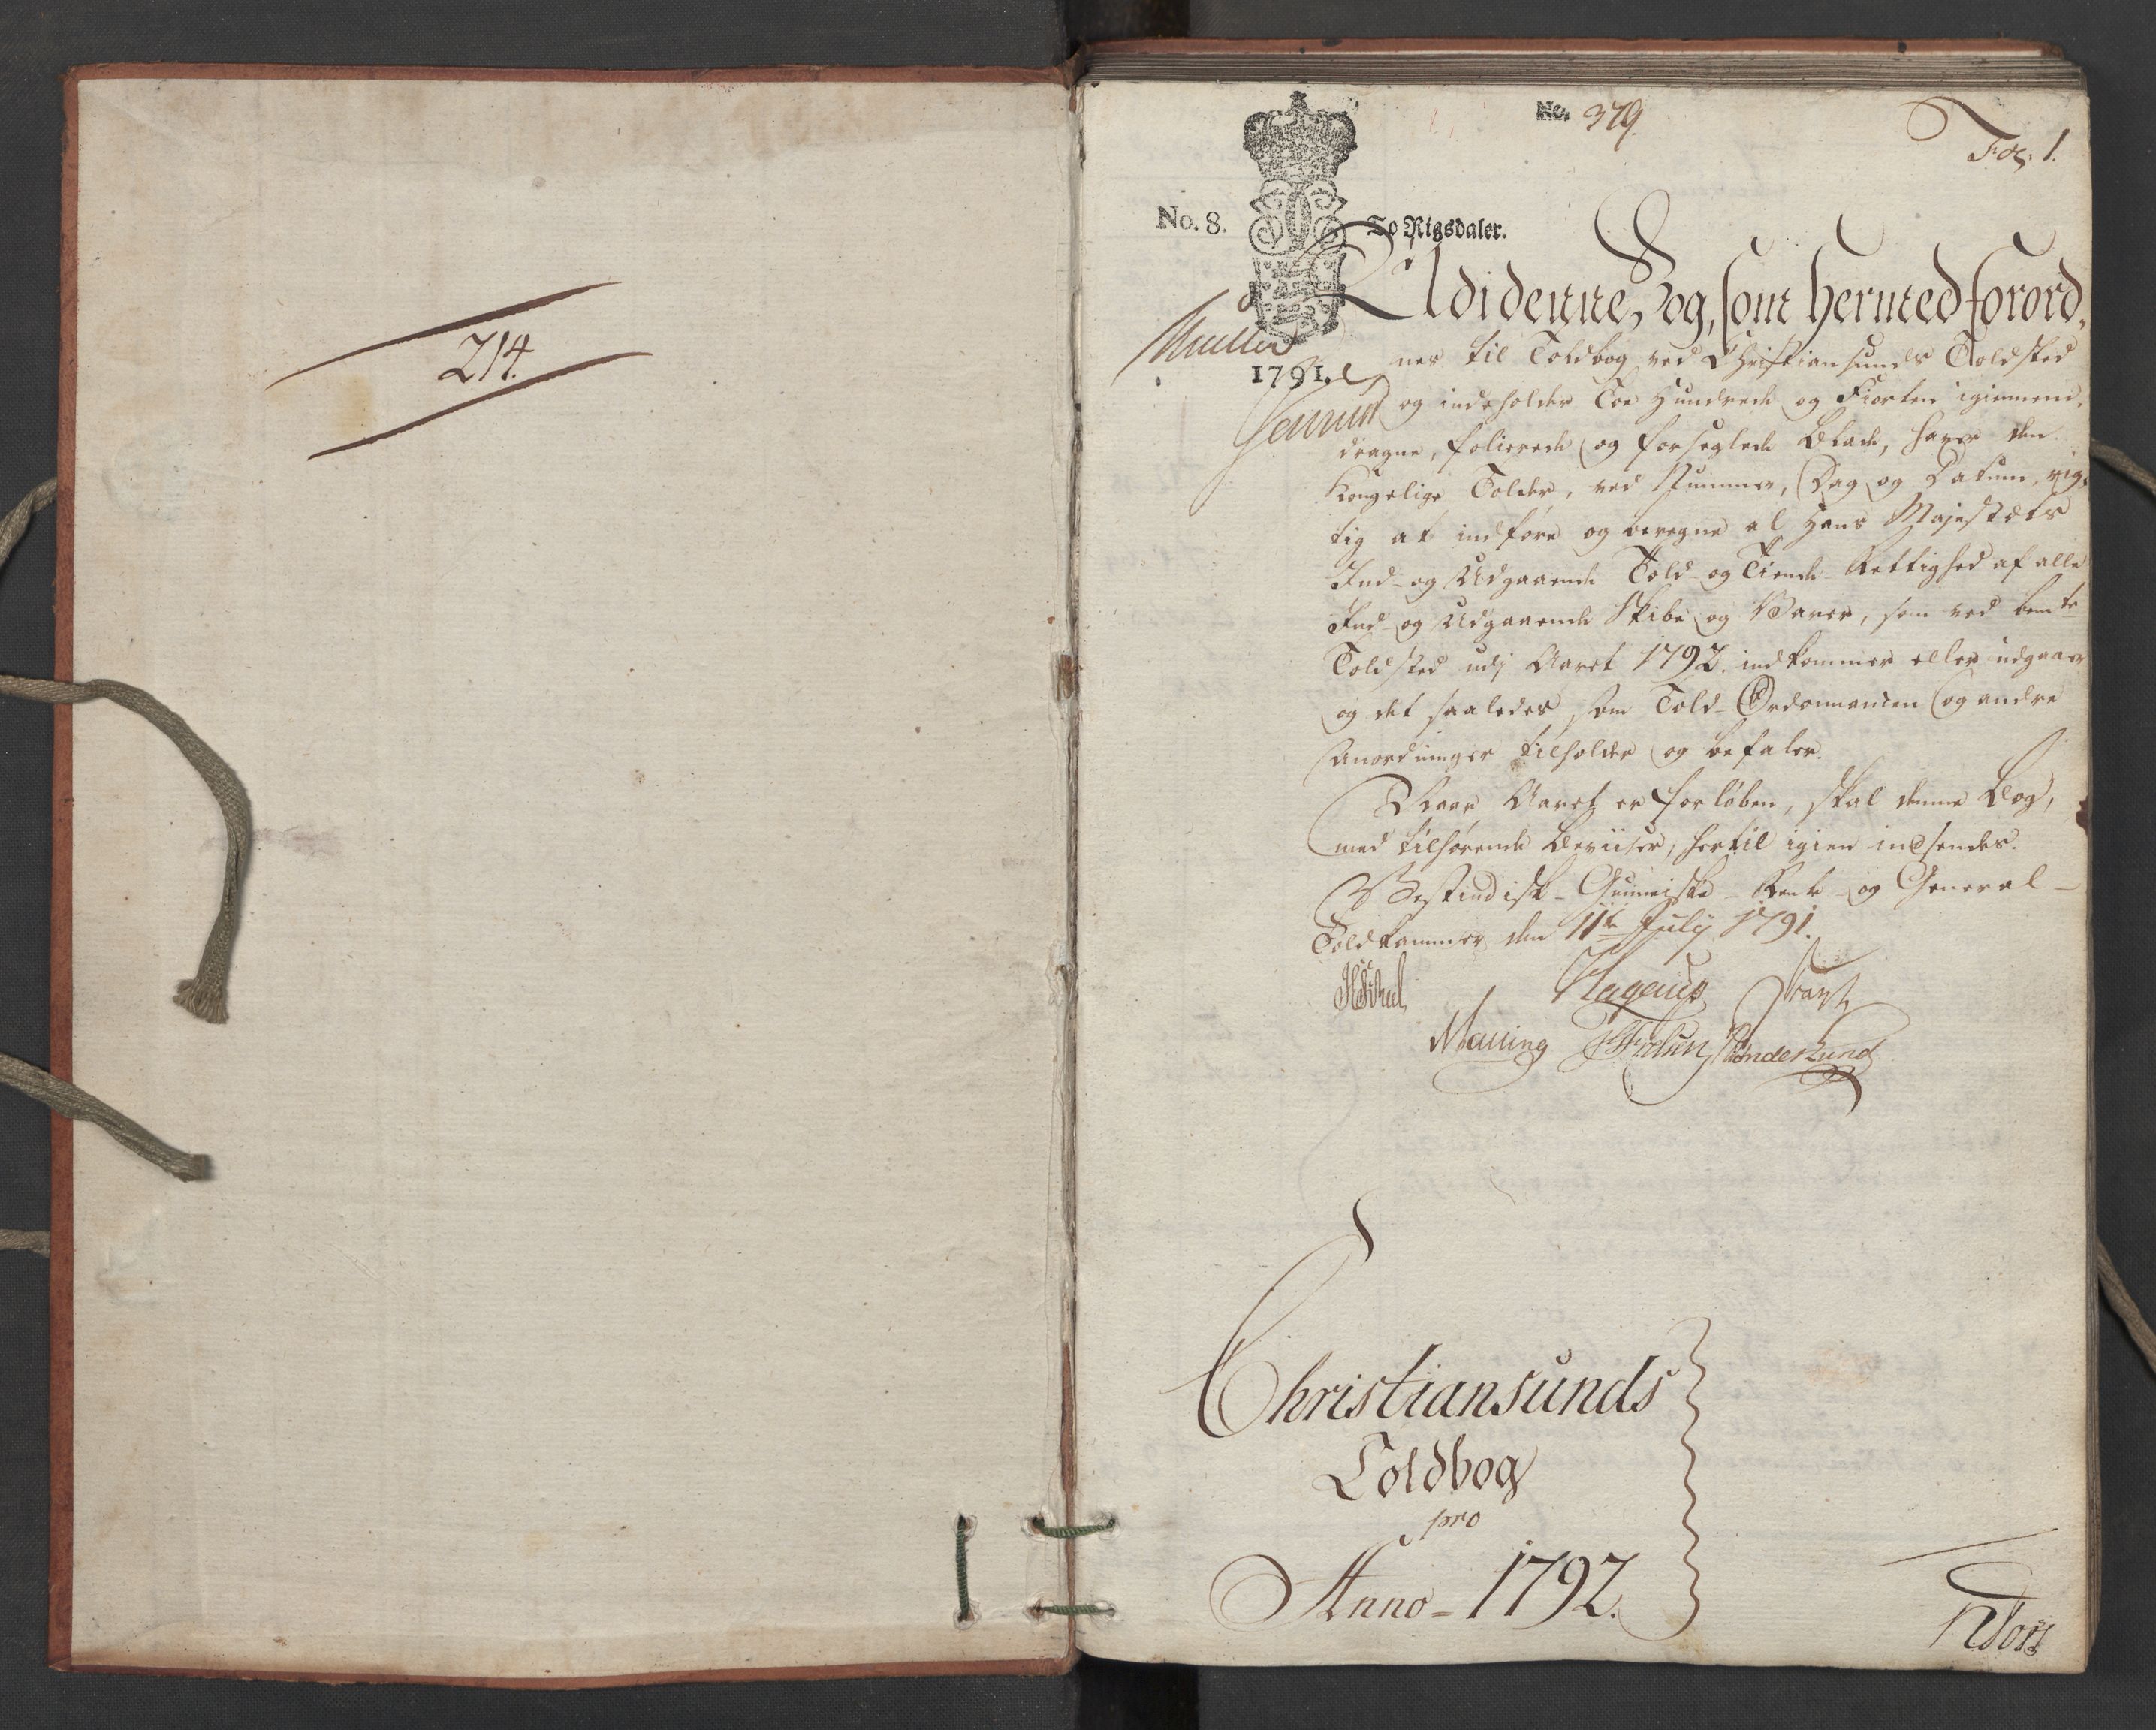 214.
No. 379.
Fol: 1.
No. 8.
To Rigsdaler.
1791.
Udi denne Bog, som hermed forord,
nes til Toldbog ved Christiansunds Toldsted
og indeholder Toe Hundrede og Fiorten igiennem,
dragne, folierede og forseglede Blade, haver den
Kongelige Tolder, ved Nummer, Dag og Datum, rig,
tig at indføre og beregne al Hans Majestæts
Ind- og Udgaaende Told- og Tiende-Rettighed af alle
Ind- og Udgaaende Skibe og Varer, som ved bemte
Toldsted udj Aaret 1792. indkommer eller udgaaer
og det saaledes som Told-Ordonnancen og andre
Anordninger tilholder og befaler.
Naar Aaret er forløben, skal denne Bog,
med tilhørende Beviiser, hertil igien indsendes.
Vestindisk-Guineiske-Rente- og General-
Toldkammer den 11te July 1791.
Hagerup
Malling
Christiansunds
Toldbog
pro
Anno-1792.